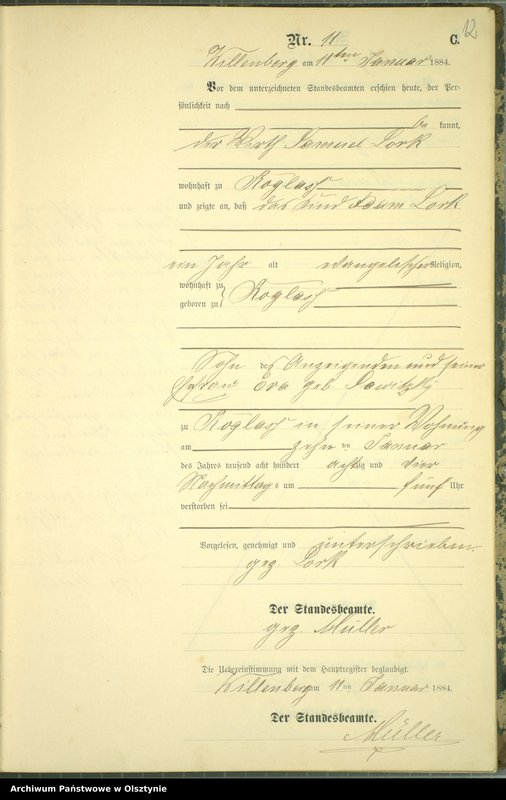 12
Nr. 11 C.
Willenberg am 11ten Januar 1884.
Vor dem unterzeichneten Standesbeamten erschien heute, der Per-
sönlichkeit nach
be kannt,
der Wirth Samuel Lork
wohnhaft zu Roglass
und zeigte an, daß das Kind Adam Lork
ein Jahr alt evangelischer Religion,
wohnhaft zu
geboren zu Roglass
Sohn des Anzeigenden und seiner
Ehefrau Eva geb.
zu Roglass in seiner Wohnung
am zehn ten Januar
des Jahres tausend acht hundert achtzig und vier
Nachmittags um fünf Uhr
verstorben sei
Vorgelesen, genehmigt und unterschrieben.
gez. Lork
Der Standesbeamte.
gez. Müller
Die Uebereinstimmung mit dem Hauptregister beglaubigt.
Willenberg am 11ten Januar 1884.
Der Standesbeamte.
Müller
Archiwum Państwowe w Olsztynie